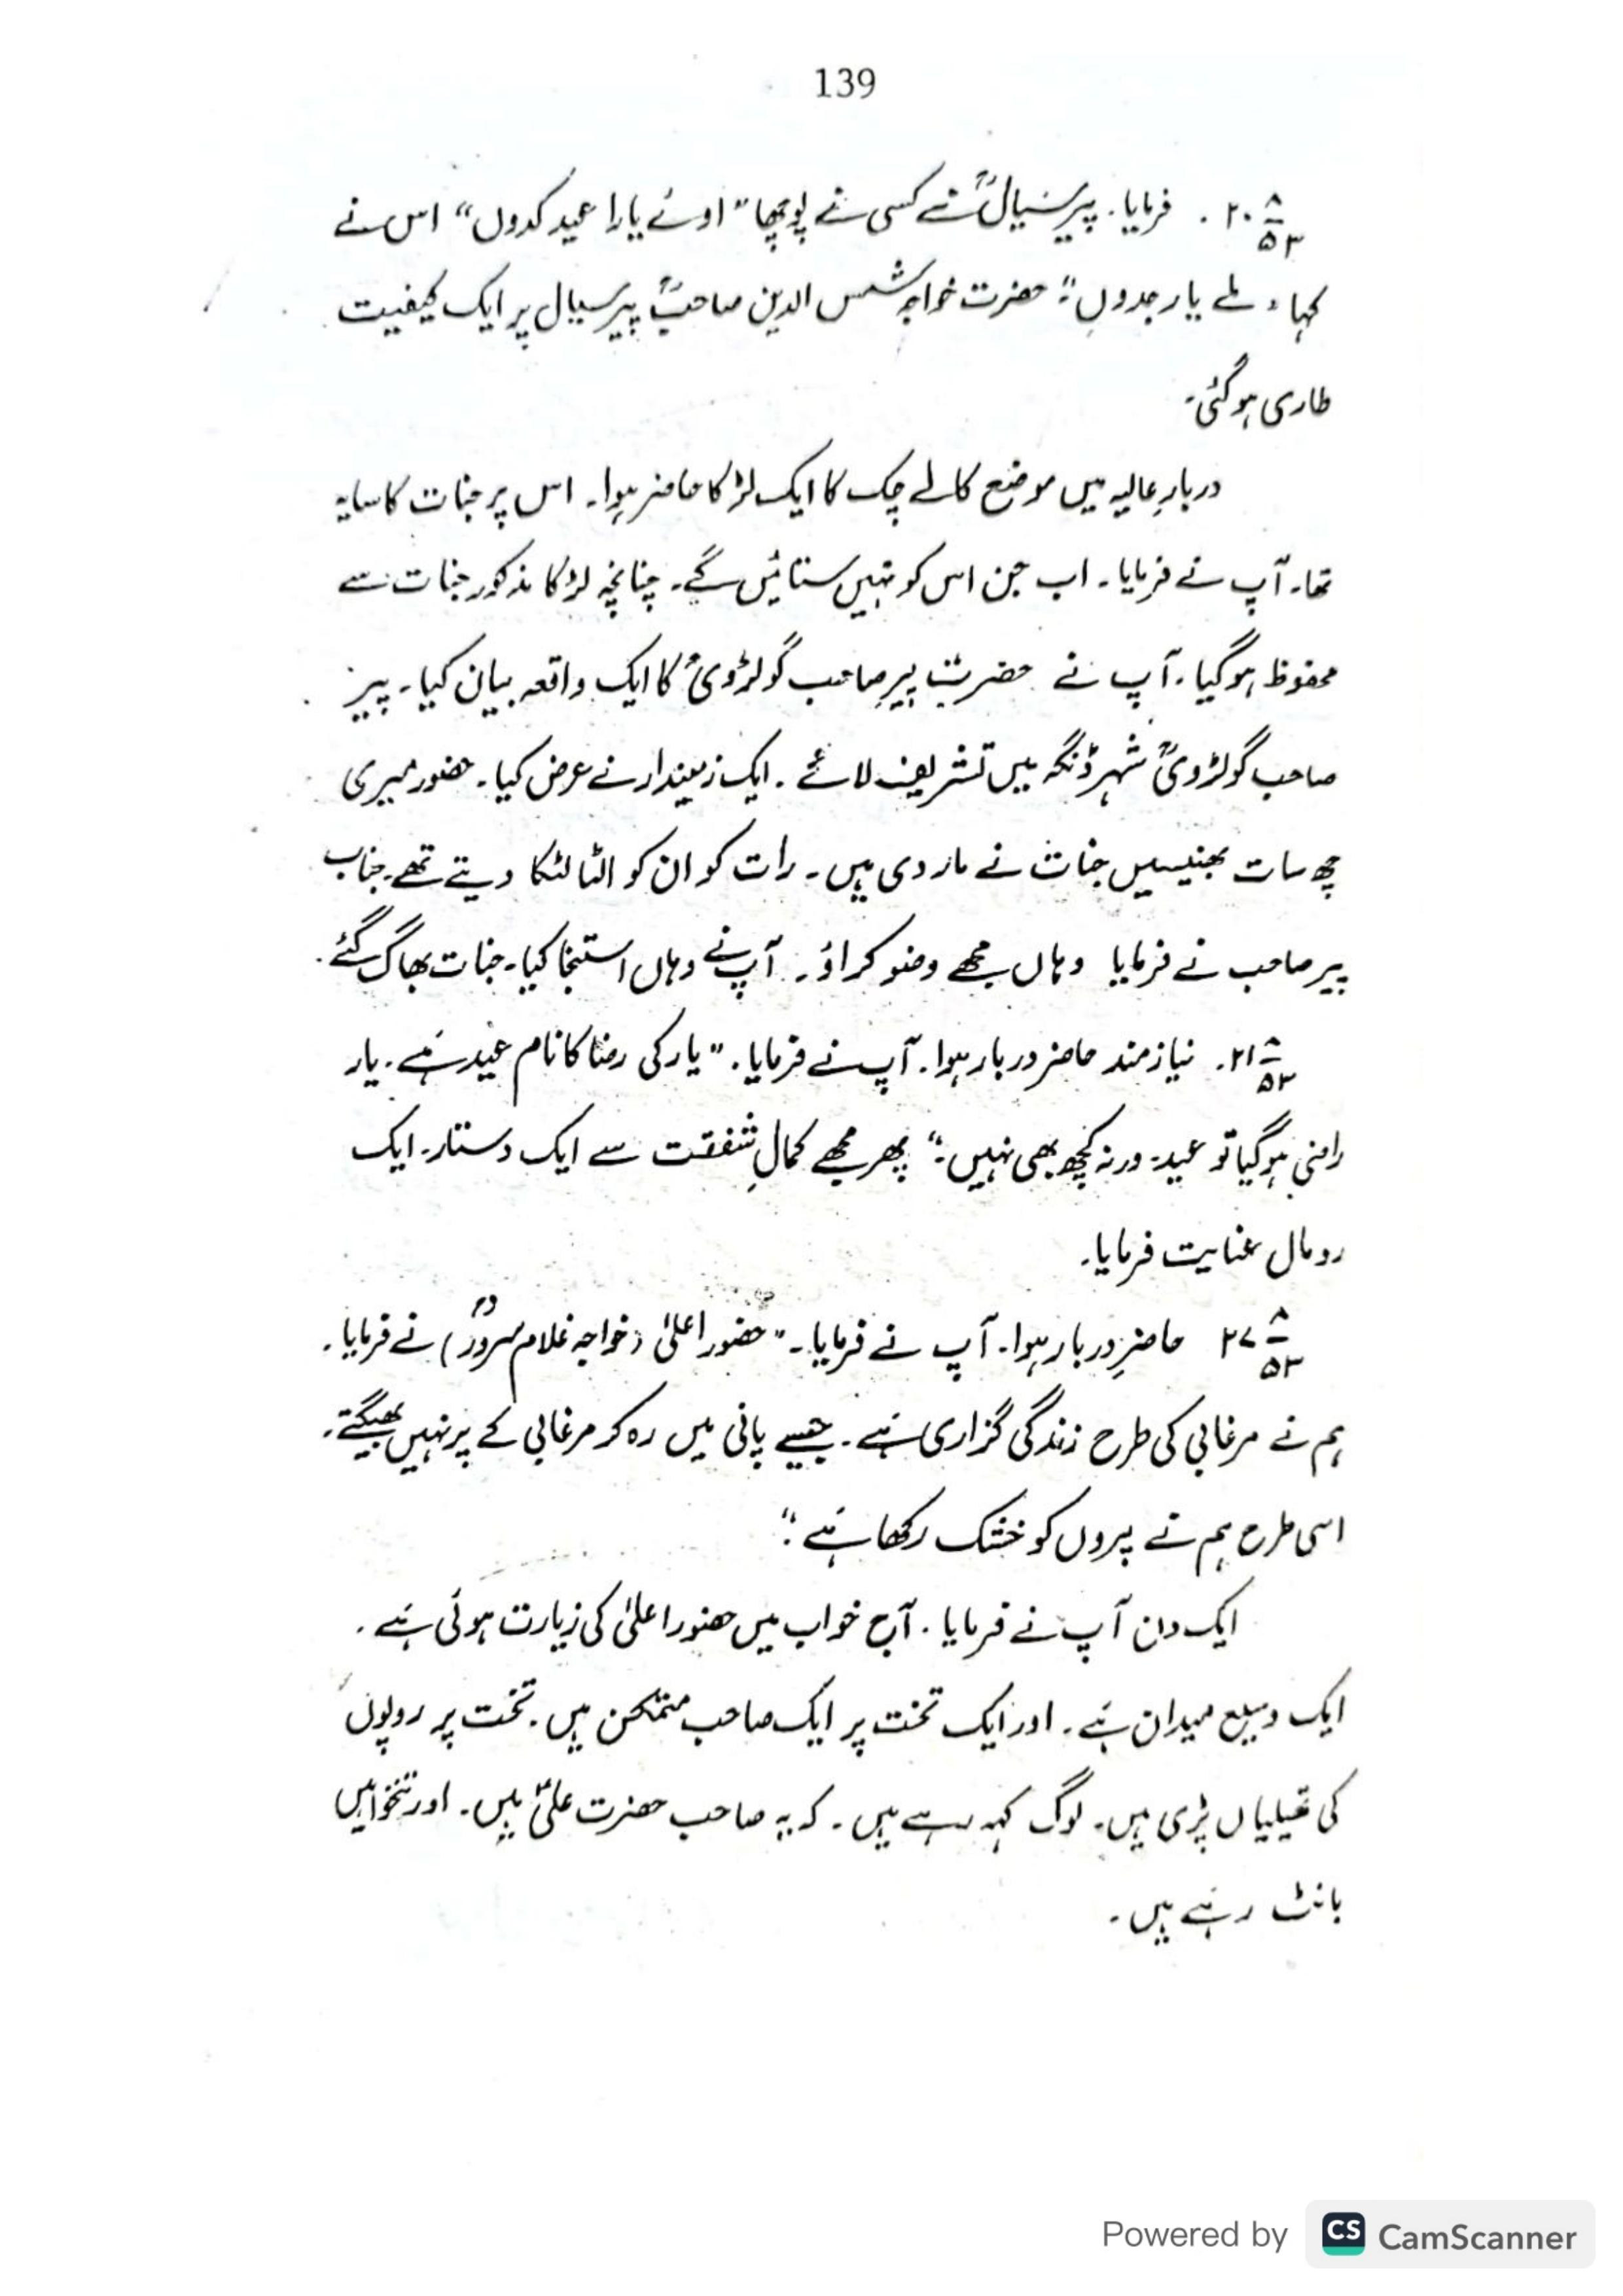 139
۲۰ ۸/۵۳ . فرمایا. پیر سیالؒ نے کسی نے پوچھا "اوئے یارا عید کدوں" اس نے
کہا، ملے یار جدوں"۔ حضرت خواجہ شمس الدین صاحبؒ پیر سیال پر ایک کیفیت
طاری ہو گئی۔
دربارِ عالیہ میں موضع کالے چک کا ایک لڑکا حاضر ہوا۔ اس پر جنات کا سایہ
تھا۔ آپ نے فرمایا۔ اب جن اس کو نہیں ستائیں گے۔ چنانچہ لڑکا مذکور جنات سے
محفوظ ہو گیا۔ آپ نے حضرت پیر صاحب گولڑویؒ کا ایک واقعہ بیان کیا۔ پیر
صاحب گولڑویؒ شہر ڈنگہ میں تشریف لائے۔ ایک زمیندار نے عرض کیا۔ حضور میری
چھ سات بھینسیں جنات نے مار دی ہیں۔ رات کو ان کو الٹا لٹکا دیتے تھے۔ جناب
پیر صاحب نے فرمایا وہاں مجھے وضو کراؤ۔ آپ نے وہاں استنجا کیا۔ جنات بھاگ گئے۔
۲۱ ۸/۵۳. نیاز مند حاضر دربار ہوا۔ آپ نے فرمایا۔ "یار کی رضا کا نام عید ہے۔ یار
راضی ہو گیا تو عید۔ ورنہ کچھ بھی نہیں۔" پھر مجھے کمالِ شفقت سے ایک دستار۔ ایک
رومال عنایت فرمایا۔
۲۷ ۸/۵۳ حاضرِ دربار ہوا۔ آپ نے فرمایا۔ "حضور اعلیٰ (خواجہ غلام سرورؒ) نے فرمایا۔
ہم نے مرغابی کی طرح زندگی گزاری ہے۔ جیسے پانی میں رہ کر مرغابی کے پر نہیں بھیگتے۔
اسی طرح ہم نے پروں کو خشک رکھا ہے"۔
ایک دن آپ نے فرمایا۔ آج خواب میں حضور اعلیٰ کی زیارت ہوئی ہے۔
ایک وسیع میدان ہے۔ اور ایک تخت پر ایک صاحب متمکن ہیں۔ تخت پر روپوں
کی تھیلیاں پڑی ہیں۔ لوگ کہہ رہے ہیں۔ کہ یہ صاحب حضرت علیؓ ہیں۔ اور تنخواہیں
بانٹ رہے ہیں۔
Powered by CS CamScanner